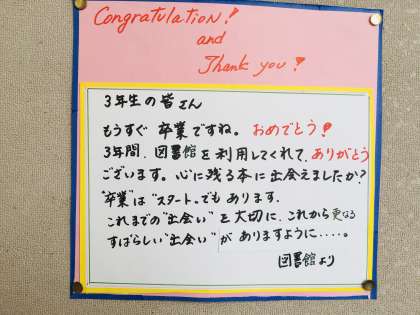 Congratulation!
and
Thank you!
3年生の皆さん
もうすぐ卒業ですね。おめでとう!
3年間、図書館を利用してくれて、ありがとう
ございます。心に残る本に出会えましたか?
"卒業"は"スタート"でもあります.
これまでの"出会い"を大切に、これから更なる
すばらしい"出会い"がありますように……。
図書館より